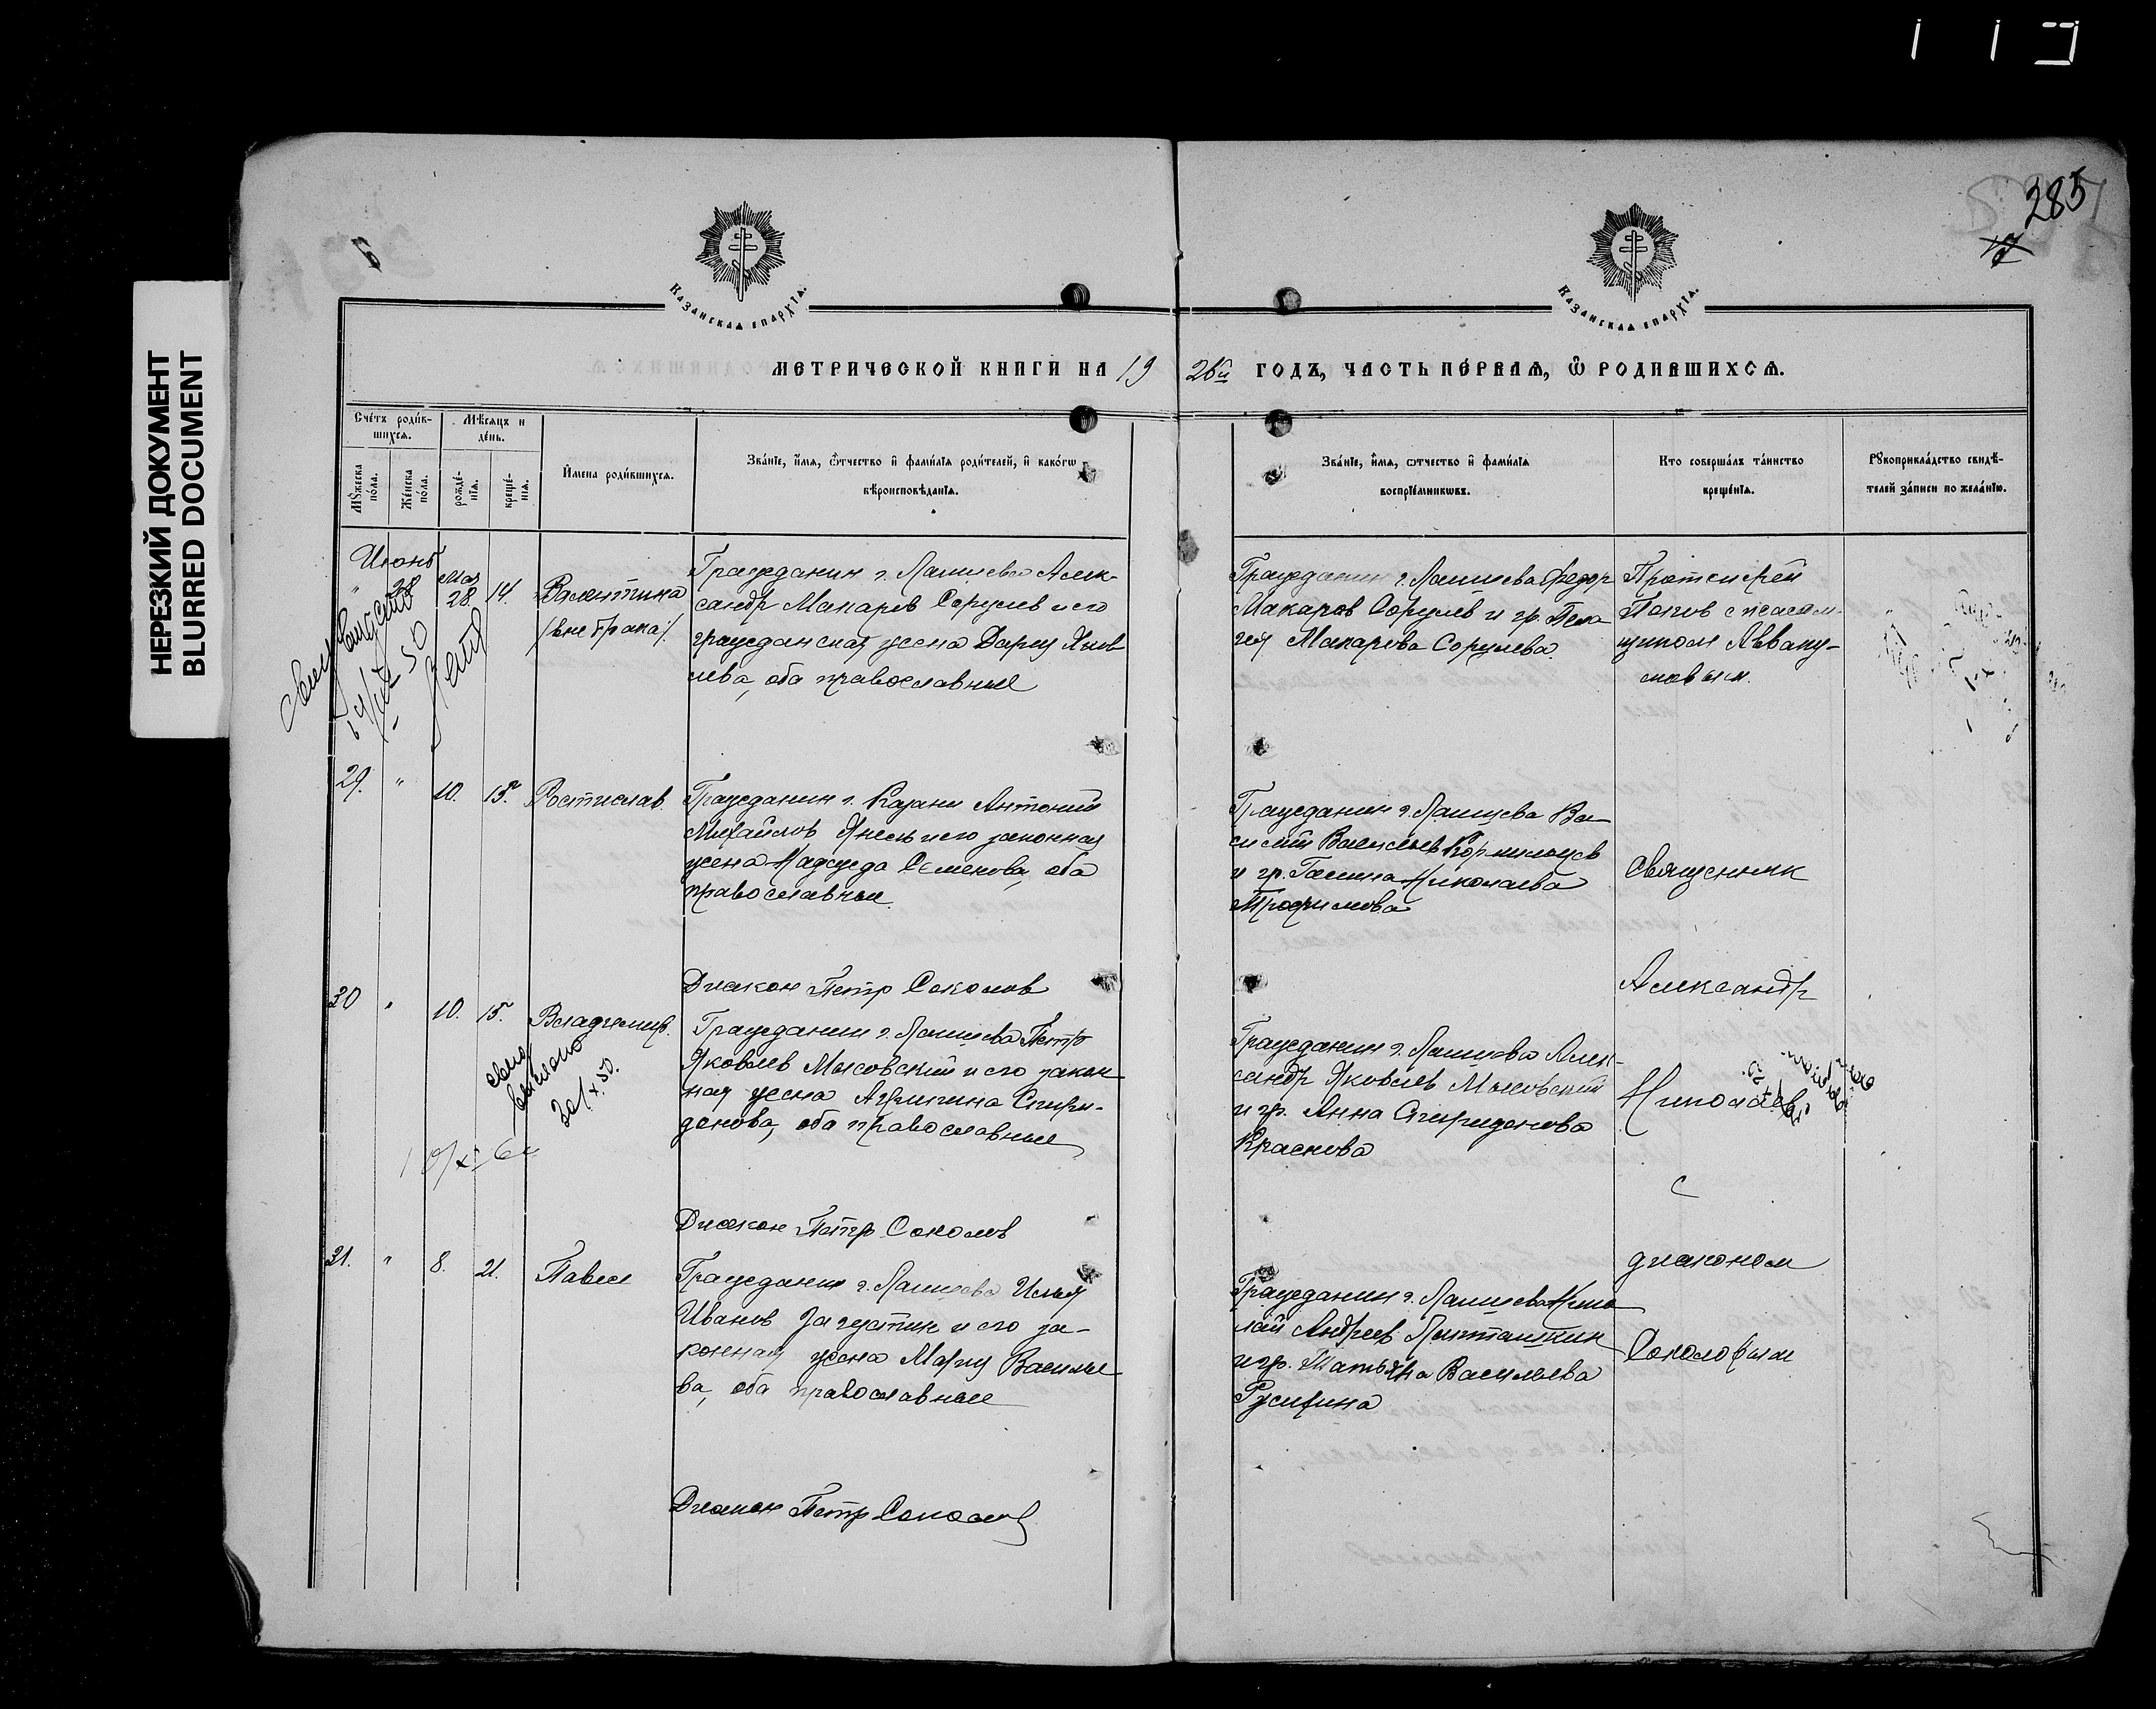 НЕРЕЗКИЙ ДОКУМЕНТ
BLURRED DOCUMENT
285
КАЗАНСКАЯ ЕПАРХІЯ.
КАЗАНСКАЯ ЕПАРХІЯ.
МЕТРИЧЕСКОЙ КНИГИ НА 19 26й ГОДЪ, ЧАСТЬ ПЕРВАЯ, Ѿ РОДИВШИХСЯ.
Счетъ родив-
шихся.
Мѣсяцъ и
день.
Мꙋжеска
пола.
Женска
пола.
рожде-
нія.
креще-
нія.
Имена родившихся.
Званіе, имя, ѿтчество и фамилія родителей, и какогѡ
вѣроисповѣданія.
Званіе, имя, ѿтчество и фамилія
воспріемникѡвъ.
Кто совершалъ таинство
крещенія.
Рꙋкоприкладство свидѣ-
телей записи по желанію.
Июнь
" 28 Мая 28. 14. Валентина
/вне брака/.
Гражданин г. Лаишева Алек-
сандр Макаров Сорулев и его
гражданская жена Дария Яков
лева, оба православные
Гражданин г. Лаишева Федор
Макаров Сорулев и гр. Пела-
гея Макарова Сорулева.
Протоиерей
Попов с псалом-
щиком Аввaку-
мовым.
29. " 10. 15. Ростислав.
Гражданин г. Казани Антоний
Михайлов и его законная
жена Надежда Семенова, оба
православные.
Гражданин г. Лаишева Ва-
силий Васильев Кормильцев
и гр. Галина Николаева
Трофимова
Священник
Диакон Петр Соколов
Александр
30 " 10. 15. Владимир.
Гражданин г. Лаишева Петр
Яковлев Мысовский и его закон
ная жена Агрипина Спири-
донова, оба православные
выслано
30/X.50.
Гражданин г. Лаишева Алек-
сандр Яковлев Мысовский
и гр. Анна Спиридонова
Краснова
Николаев
с
Диакон Петр Соколов
диаконом
31. " 8. 21. Павел
Гражданин г. Лаишева Илья
Иванов Загустин и его за-
конная жена Мария Василье
ва, оба православные
Гражданин г. Лаишева Нико
лай Андреев Лапташкин
и гр. Татьяна Васильева
Русинина
Соколовым
Диакон Петр Соколов